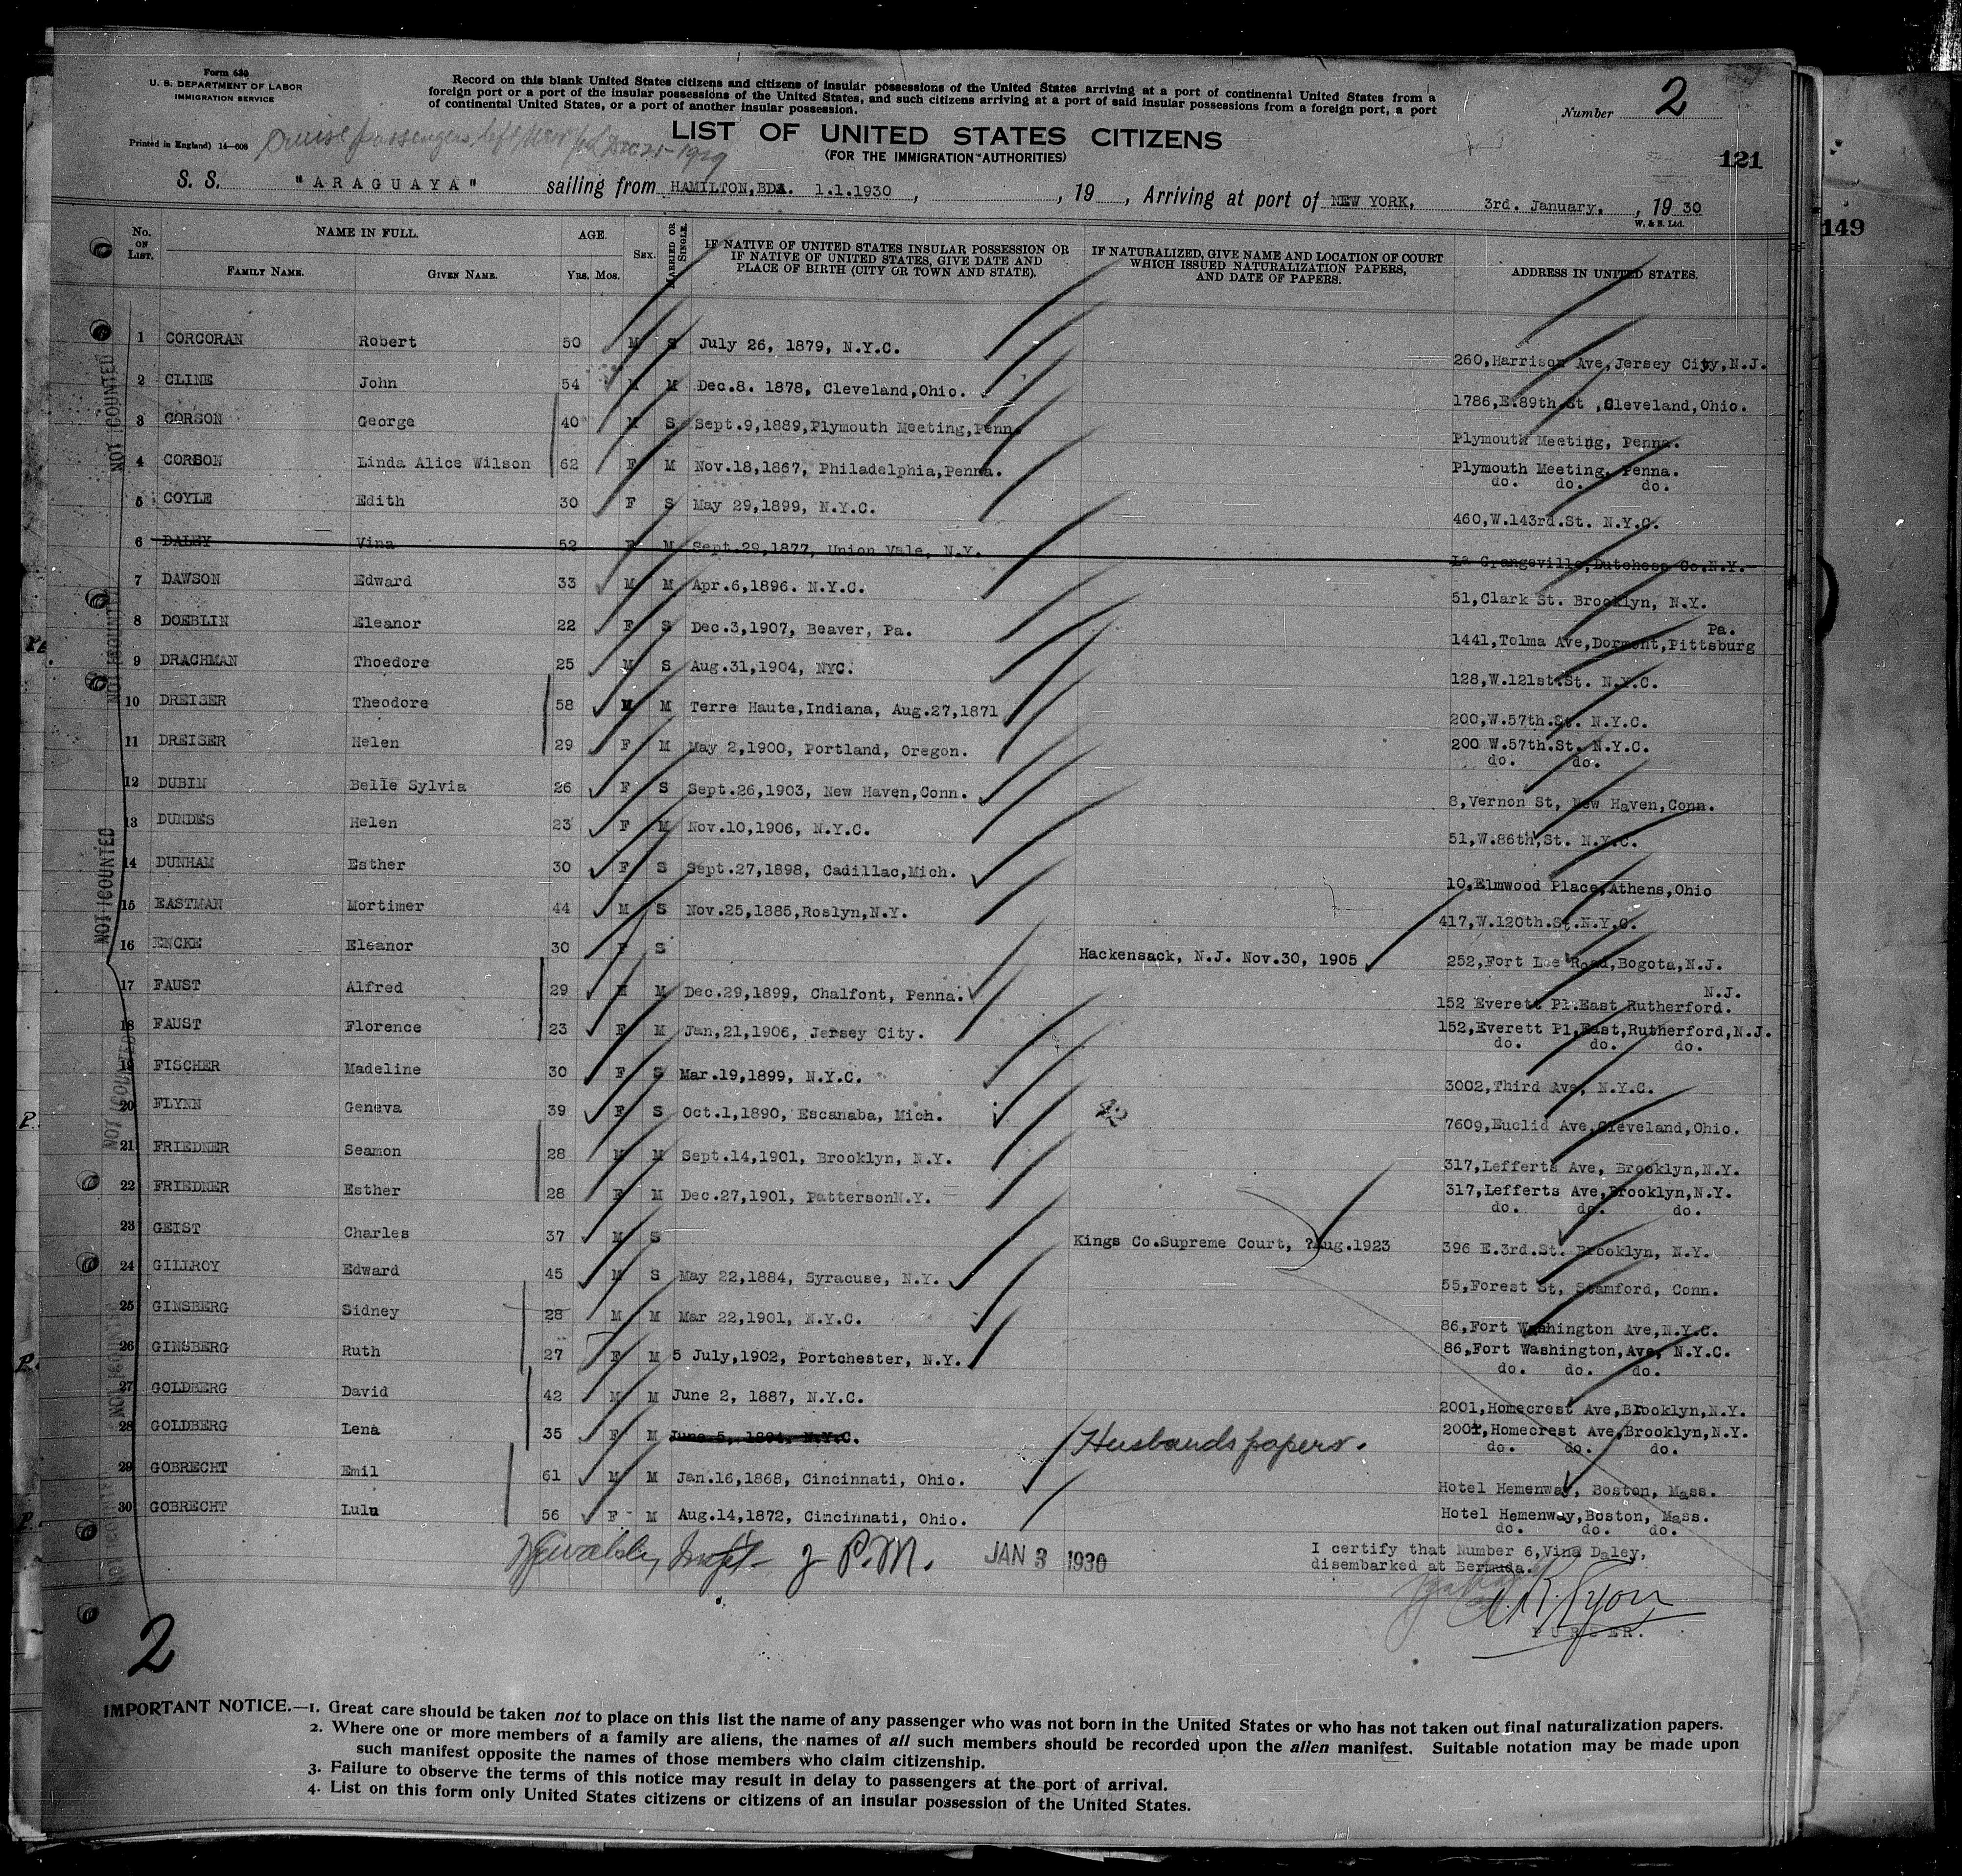 Form 630
U. S. DEPARTMENT OF LABOR
IMMIGRATION SERVICE
Printed in England) 14—606
Record on this blank United States citizens and citizens of insular possessions of the United States arriving at a port of continental United States from a
foreign port or a port of the insular possessions of the United States, and such citizens arriving at a port of said insular possessions from a foreign port, a port
of continental United States, or a port of another insular possession.
Number 2
Cruise passengers left New York Dec 21-1929
LIST OF UNITED STATES CITIZENS
(FOR THE IMMIGRATION AUTHORITIES)
121
149
S. S. "ARAGUAYA" sailing from HAMILTON, BDA. 1.1.1930, , 19 , Arriving at port of NEW YORK, 3rd. January, , 19 30
W. & S. Ltd.
No. ON LIST. NAME IN FULL. AGE. SEX. MARRIED OR SINGLE. IF NATIVE OF UNITED STATES INSULAR POSSESSION OR IF NATIVE OF UNITED STATES, GIVE DATE AND PLACE OF BIRTH (CITY OR TOWN AND STATE). IF NATURALIZED, GIVE NAME AND LOCATION OF COURT WHICH ISSUED NATURALIZATION PAPERS, AND DATE OF PAPERS. ADDRESS IN UNITED STATES.
FAMILY NAME. GIVEN NAME. YRS. MOS.
1 CORCORAN Robert 50 M S July 26, 1879, N.Y.C. 260,Harrison Ave,Jersey City,N.J.
2 CLINE John 54 M M Dec.8. 1878, Cleveland,Ohio. 1786,E.89th.St ,Cleveland,Ohio.
3 CORSON George 40 M S Sept.9,1889,Plymouth Meeting,Penn. Plymouth Meeting, Penna.
4 CORSON Linda Alice Wilson 62 F M Nov.18,1867, Philadelphia,Penna. Plymouth Meeting, Penna.
do. do. do.
5 COYLE Edith 30 F S May 29,1899, N.Y.C. 460,W.143rd.St. N.Y.C.
6 DALEY Vina 52 F M Sept.29,1877, Union Vale, N.Y. La Grangeville,Dutchess Co.N.Y.
7 DAWSON Edward 33 M M Apr.6,1896. N.Y.C. 51,Clark St. Brooklyn, N.Y.
8 DOEBLIN Eleanor 22 F S Dec.3,1907, Beaver, Pa. 1441,Tolma Ave,Dormont,Pittsburg Pa.
9 DRACHMAN Thoedore 25 M S Aug.31,1904, NYC. 128,W.121st.St. N.Y.C.
10 DREISER Theodore 58 M M Terre Haute,Indiana, Aug.27,1871 200,W.57th.St. N.Y.C.
11 DREISER Helen 29 F M May 2,1900, Portland, Oregon. 200 W.57th.St. N.Y.C.
do. do.
12 DUBIN Belle Sylvia 26 F S Sept.26,1903, New Haven,Conn. 8,Vernon St, New Haven,Conn.
13 DUNDES Helen 23 F M Nov.10,1906, N.Y.C. 51,W.86th,St. N.Y.C.
14 DUNHAM Esther 30 F S Sept.27,1898, Cadillac,Mich. 10,Elmwood Place,Athens,Ohio
15 EASTMAN Mortimer 44 M S Nov.25,1885,Roslyn,N.Y. 417,W.120th.St.N.Y.C.
16 ENCKE Eleanor 30 F S Hackensack, N.J. Nov.30, 1905 252,Fort Lee Road,Bogota,N.J.
17 FAUST Alfred 29 M M Dec.29,1899, Chalfont, Penna. 152 Everett Pl.East Rutherford. N.J.
18 FAUST Florence 23 F M Jan,21,1906, Jersey City. 152,Everett Pl,East,Rutherford,N.J.
do. do. do.
19 FISCHER Madeline 30 F S Mar.19,1899, N.Y.C. 3002,Third Ave, N.Y.C.
20 FLYNN Geneva 39 F S Oct.1,1890, Escanaba, Mich. 42 7609,Euclid Ave,Cleveland,Ohio.
21 FRIEDNER Seamon 28 M M Sept.14,1901, Brooklyn, N.Y. 317,Lefferts Ave, Brooklyn,N.Y.
22 FRIEDNER Esther 28 F M Dec.27,1901, PattersonN.Y. 317,Lefferts Ave,Brooklyn,N.Y.
do. do. do.
23 GEIST Charles 37 M S Kings Co.Supreme Court, ?Aug.1923 396 E.3rd.St. Brooklyn, N.Y.
24 GILLROY Edward 45 M S May 22,1884, Syracuse, N.Y. 55,Forest St, Stamford, Conn.
25 GINSBERG Sidney 28 M M Mar 22,1901, N.Y.C. 86,Fort Washington Ave,N.Y.C.
26 GINSBERG Ruth 27 F M 5 July,1902, Portchester, N.Y. 86,Fort Washington,Ave, N.Y.C.
do. do. do.
27 GOLDBERG David 42 M M June 2, 1887, N.Y.C. 2001,Homecrest Ave,Brooklyn,N.Y.
28 GOLDBERG Lena 35 F M June 5, 1894, N.Y.C. Husbands papers. 2001,Homecrest Ave,Brooklyn,N.Y.
do. do. do.
29 GOBRECHT Emil 61 M M Jan.16,1868, Cincinnati, Ohio. Hotel Hemenway, Boston, Mass.
30 GOBRECHT Lulu 56 F M Aug.14,1872, Cincinnati, Ohio. Hotel Hemenway,Boston, Mass.
do. do. do.
NOT COUNTED
NOT COUNTED
NOT COUNTED
NOT COUNTED
NOT COUNTED
P.M. JAN 3 1930
I certify that Number 6,Vina Daley,
disembarked at Bermuda.
PURSER.
2
IMPORTANT NOTICE.—1. Great care should be taken not to place on this list the name of any passenger who was not born in the United States or who has not taken out final naturalization papers.
2. Where one or more members of a family are aliens, the names of all such members should be recorded upon the alien manifest. Suitable notation may be made upon
such manifest opposite the names of those members who claim citizenship.
3. Failure to observe the terms of this notice may result in delay to passengers at the port of arrival.
4. List on this form only United States citizens or citizens of an insular possession of the United States.